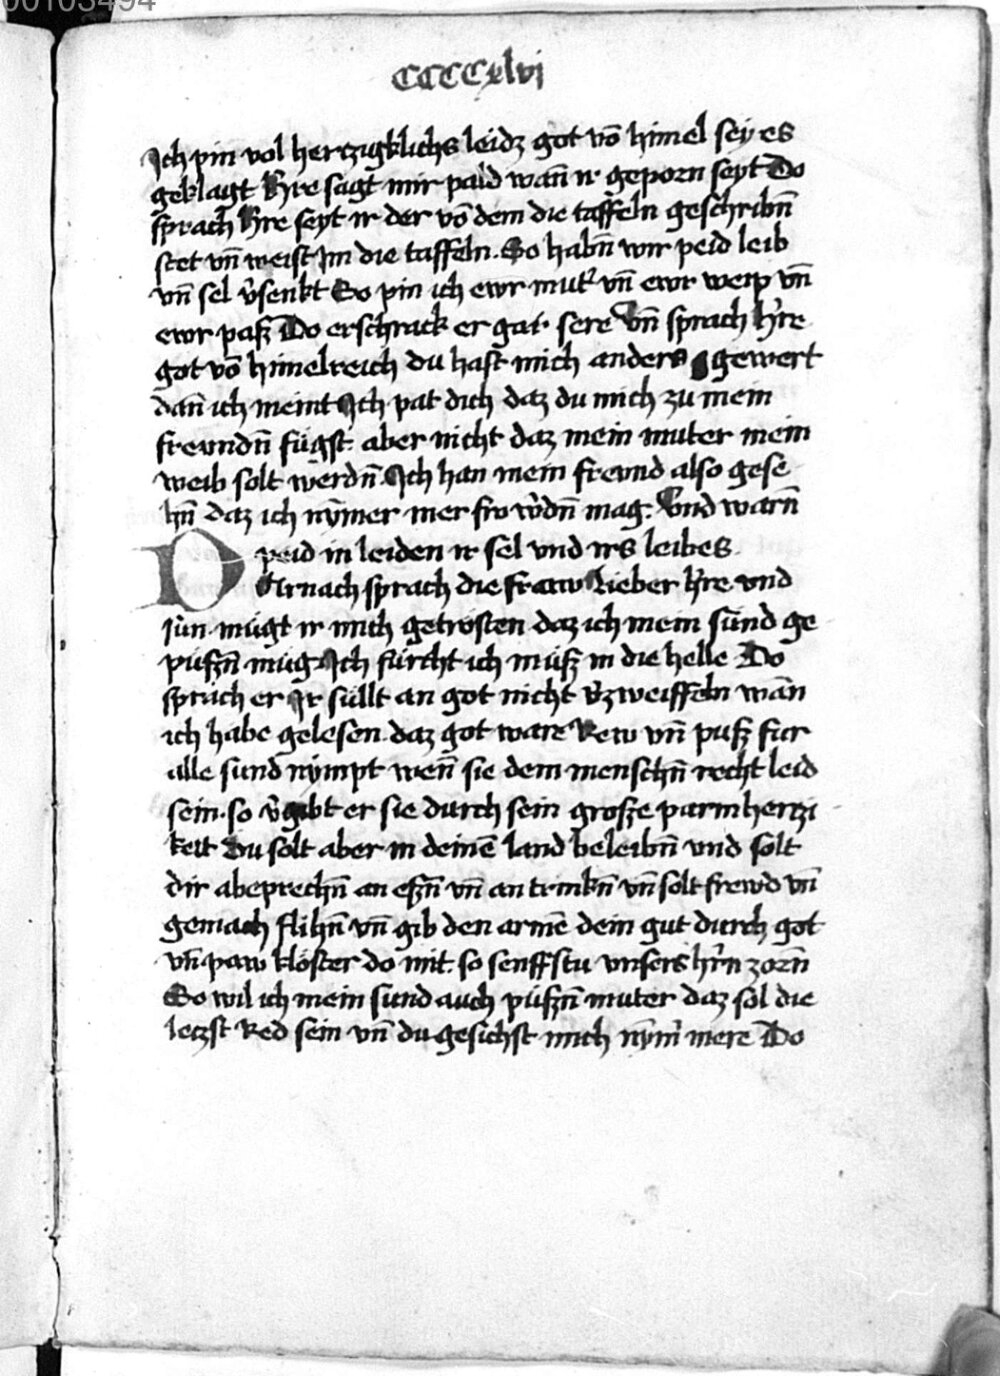 00103494
CCCCxlvi
Ich pin vol hertzigklichs leidz got vō himel sey es
geklagt h̄re sagt mir pald wan̄ ir geporn seyt Do
sprach h̄re seyt ir der vō dem die taffeln geschribn̄
stet vn̄ weist im die taffeln. So habn̄ wir peid leib
vn̄ sel v̄senkt So pin ich ewr mut̄ vn̄ ewr weip vn̄
ewr pasz Do erschrack er gar sere Vn̄ sprach h̄re
got vō himelreich du hast mich anders gewert
dan̄ ich meint Ich pat dich daz du mich zu mein
frewndn̄ fügst. aber nicht daz mein muter mein
weib solt werdn̄. Ich han mein frewnd also gese
hn̄ daz ich nȳmer mer fro w̄dn̄ mag. Vnd warn̄
peid in leiden ir sel vnd irs leibes.
DArnach sprach die fraw Lieber h̄re vnd
sün. mügt ir mich getrösten daz ich mein sünd ge
püszn̄ müg. Ich fürcht ich müsz in die helle Do
sprach er Ir süllt an got nicht v̄zweiffeln wān
ich habe gelesen. daz got ware Rew vn̄ pusz fur
alle sund nȳmpt wen̄ sie dem menschn̄ recht leid
sein. so v̄gibt er sie durch sein grosze parmhertzi
keit Du solt aber in deinē land beleibn̄ vnd solt
dir abeprechn̄ an eszn̄ vn̄ an trinkn̄ vn̄ solt frewd vn̄
gemach flihn̄ vn̄ gib den armē dein gut durch got
vn̄ paw klöster do mit. so senfftstu vnsers h̄rn zorn̄
So wil ich mein sund auch püszn̄ muter daz sol die
letzst Red sein vn̄ du gesichst mich nȳm̄ mere Do